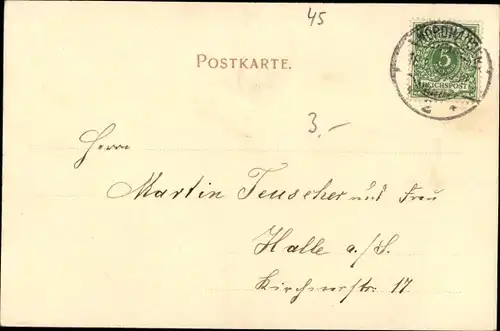 45
POSTKARTE.
NORDHAUSEN
5
REICHSPOST
2
3,-
Herrn
Martin Teuscher und Frau
Halle a./S.
Kirchnerstr. 17